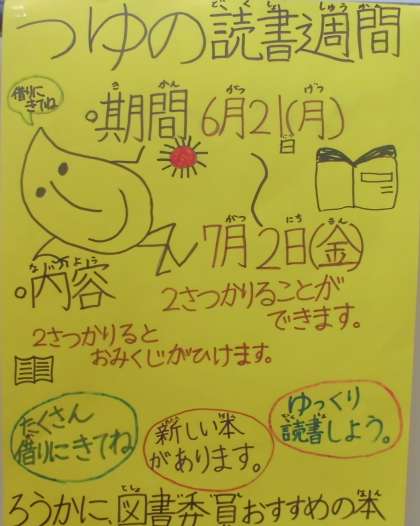 つゆの読書週間
どくしょしゅうかん
借りに
きてね
きかん
。期間 6月21日(月)
がつ げつ
〜
7月2日(金)
がつ にち きん
ないよう
。内容
2さつかりることが
できます。
2さつかりると
おみくじがひけます。
たくさん
借りにきてね
新しい本
があります。
ゆっくり
読書しよう。
ろうかに、図書委員おすすめの本